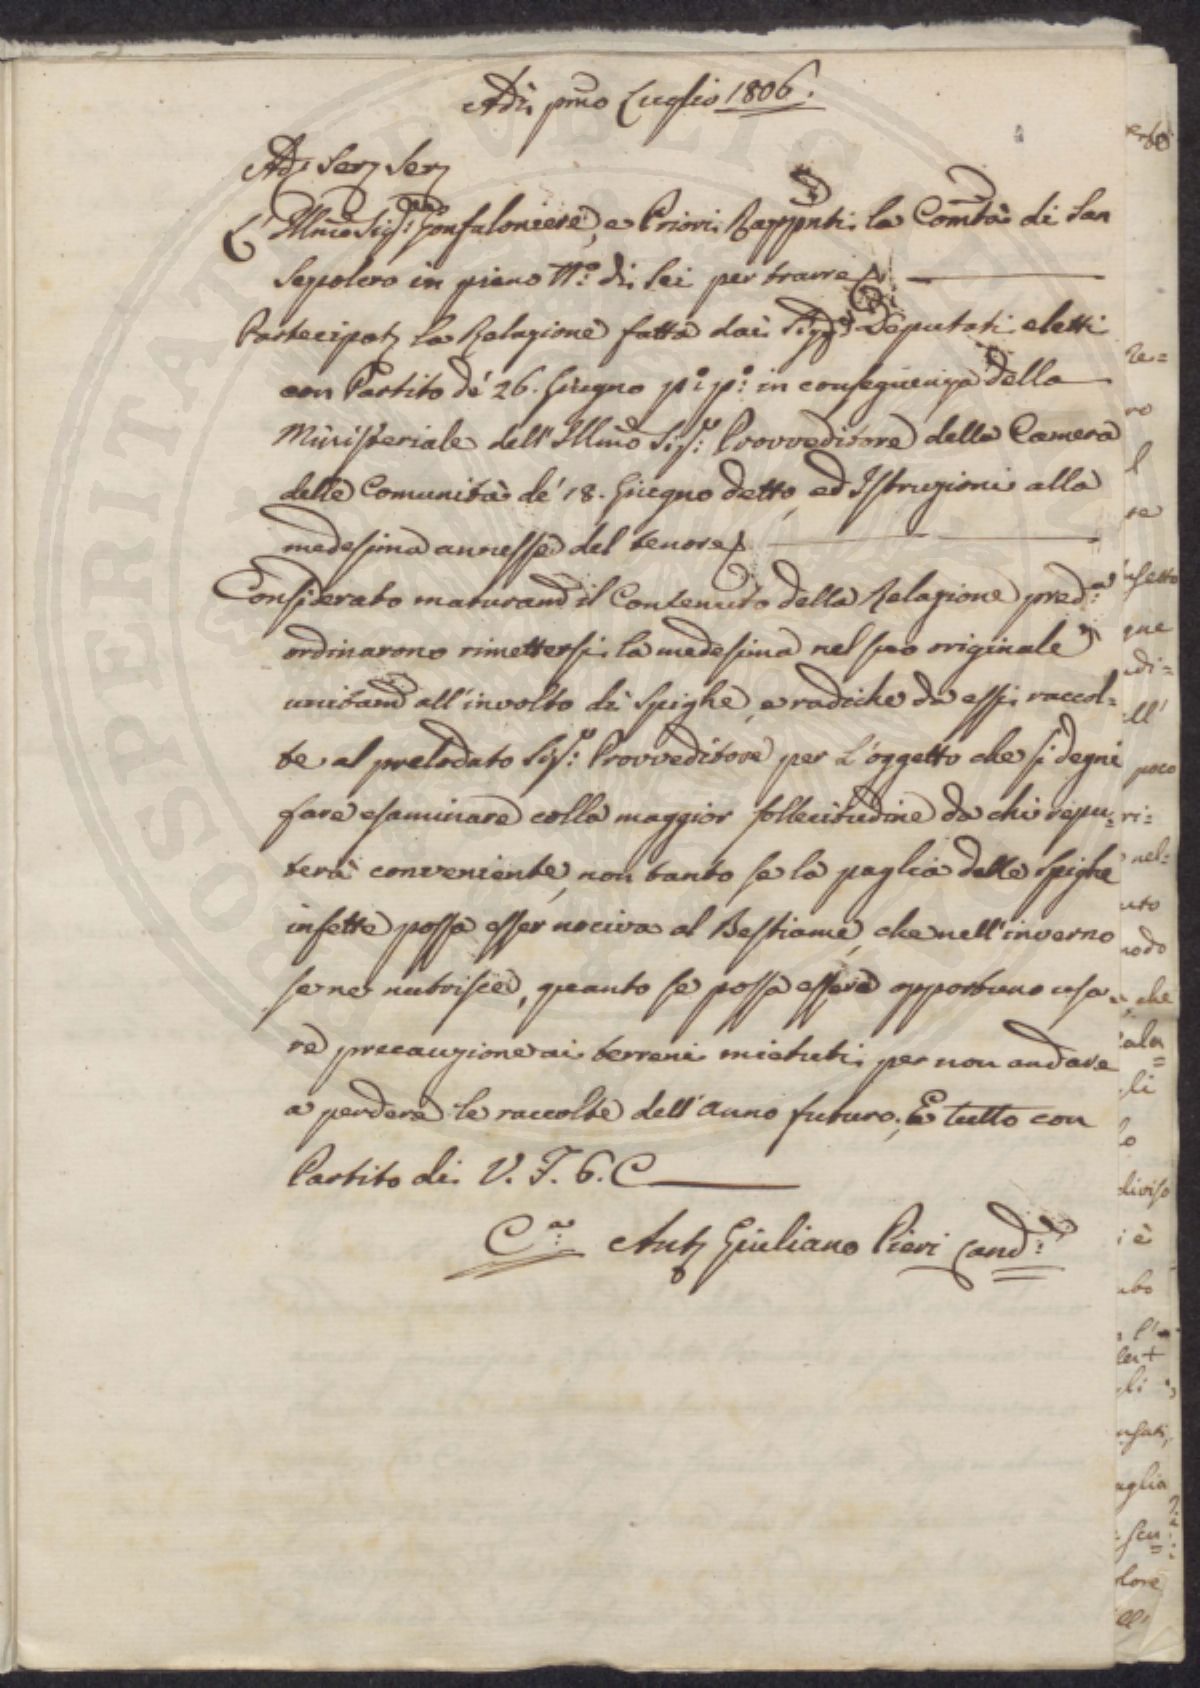 Adì pmo Luglio 1806.
Adi Serz Serz
L'Illmo Sigr: Gonfaloniere, e Priori Rapppnti la Comtà di San
Sepolcro in pieno Nº: di Sei per trarre
Partecipatz la Relazione fatta dai Sigg:ri Deputati eletti
con Partito de' 26. Giugno p:º p:º in conseguenza della
Ministeriale dell' Illmo Sigr: Provveditore della Camera
delle Comunità de' 18. Giugno detto, ed Istruzioni alla
medesima annesse del tenore
Considerato maturamte il Contenuto della Relazione pred:a
ordinarono rimettersi la medesima nel suo originale
unitamte all' involto di Spighe, e radiche da essi raccol=
te al prelodato Sigr: Provveditore per l'oggetto che si degni
fare esaminare colla maggior sollecitudine da chi repu=
terà conveniente, non tanto se la paglia delle Spighe
infette possa esser nociva al Bestiame, che nell' inverno
se ne nutrisce, quanto se possa essere opportuno usa=
re precauzione ai terreni mietuti per non andare
a perdere le raccolte dell' anno futuro; E tutto con
Partito di V. F. 6. C
C:a Antz Giuliano Pieri Canc:
re=
ro
re
infetto
que
di=
ll'
poco
ri=
nel=
uto
modo
che
ala=
li
lo
diviso
è
li
aglia
scu=
lore